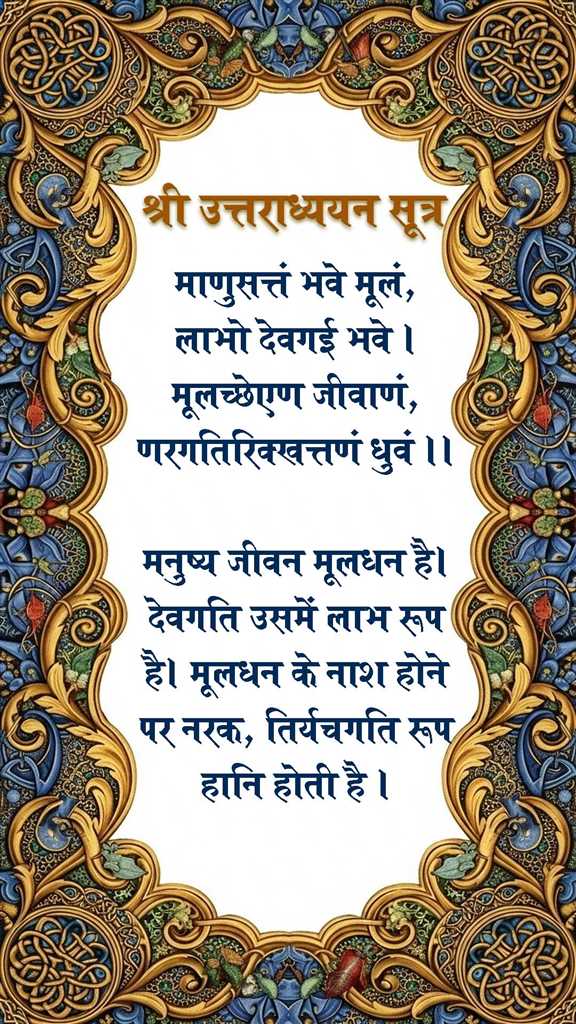 श्री उत्तराध्ययन सूत्र
माणुसत्तं भवे मूलं,
लाभो देवगई भवे ।
मूलच्छेएण जीवाणं,
णरगतिरिक्खत्तणं धुवं ।।
मनुष्य जीवन मूलधन है।
देवगति उसमें लाभ रूप
है। मूलधन के नाश होने
पर नरक, तिर्यचगति रूप
हानि होती है ।